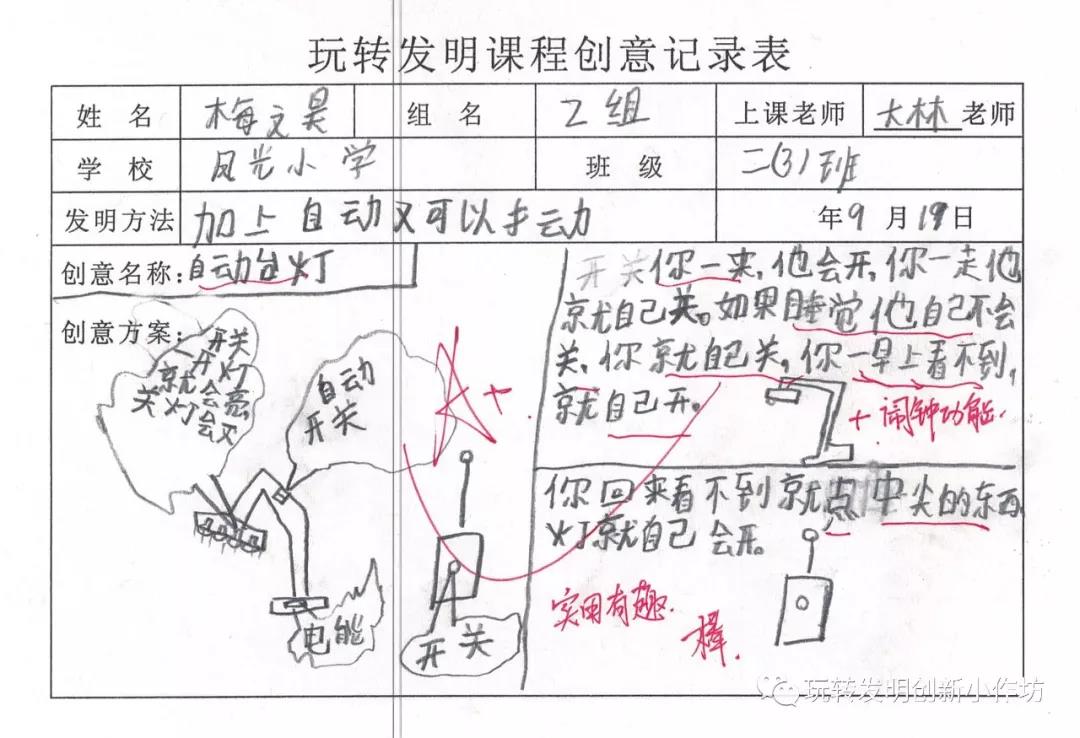 玩转发明课程创意记录表
姓 名 梅文昊 组 名 乙组 上课老师 大林 老师
学 校 风光小学 班 级 二(3)班
发明方法 加上自动又可以手动 年9月19日
创意名称:自动台灯
创意方案:
开关
一开灯
就会亮
关灯会又
自动
开关
电能
开关
开关你一来,他会开,你一走他
就自己关。如果睡觉他自己不会
关,你就自己关,你一早上看不到,
就自己开。
+闹钟功能.
你回来看不到就点中尖的东西
灯就自己会开。
A+
实用有趣.
棒.
玩转发明创新小作坊